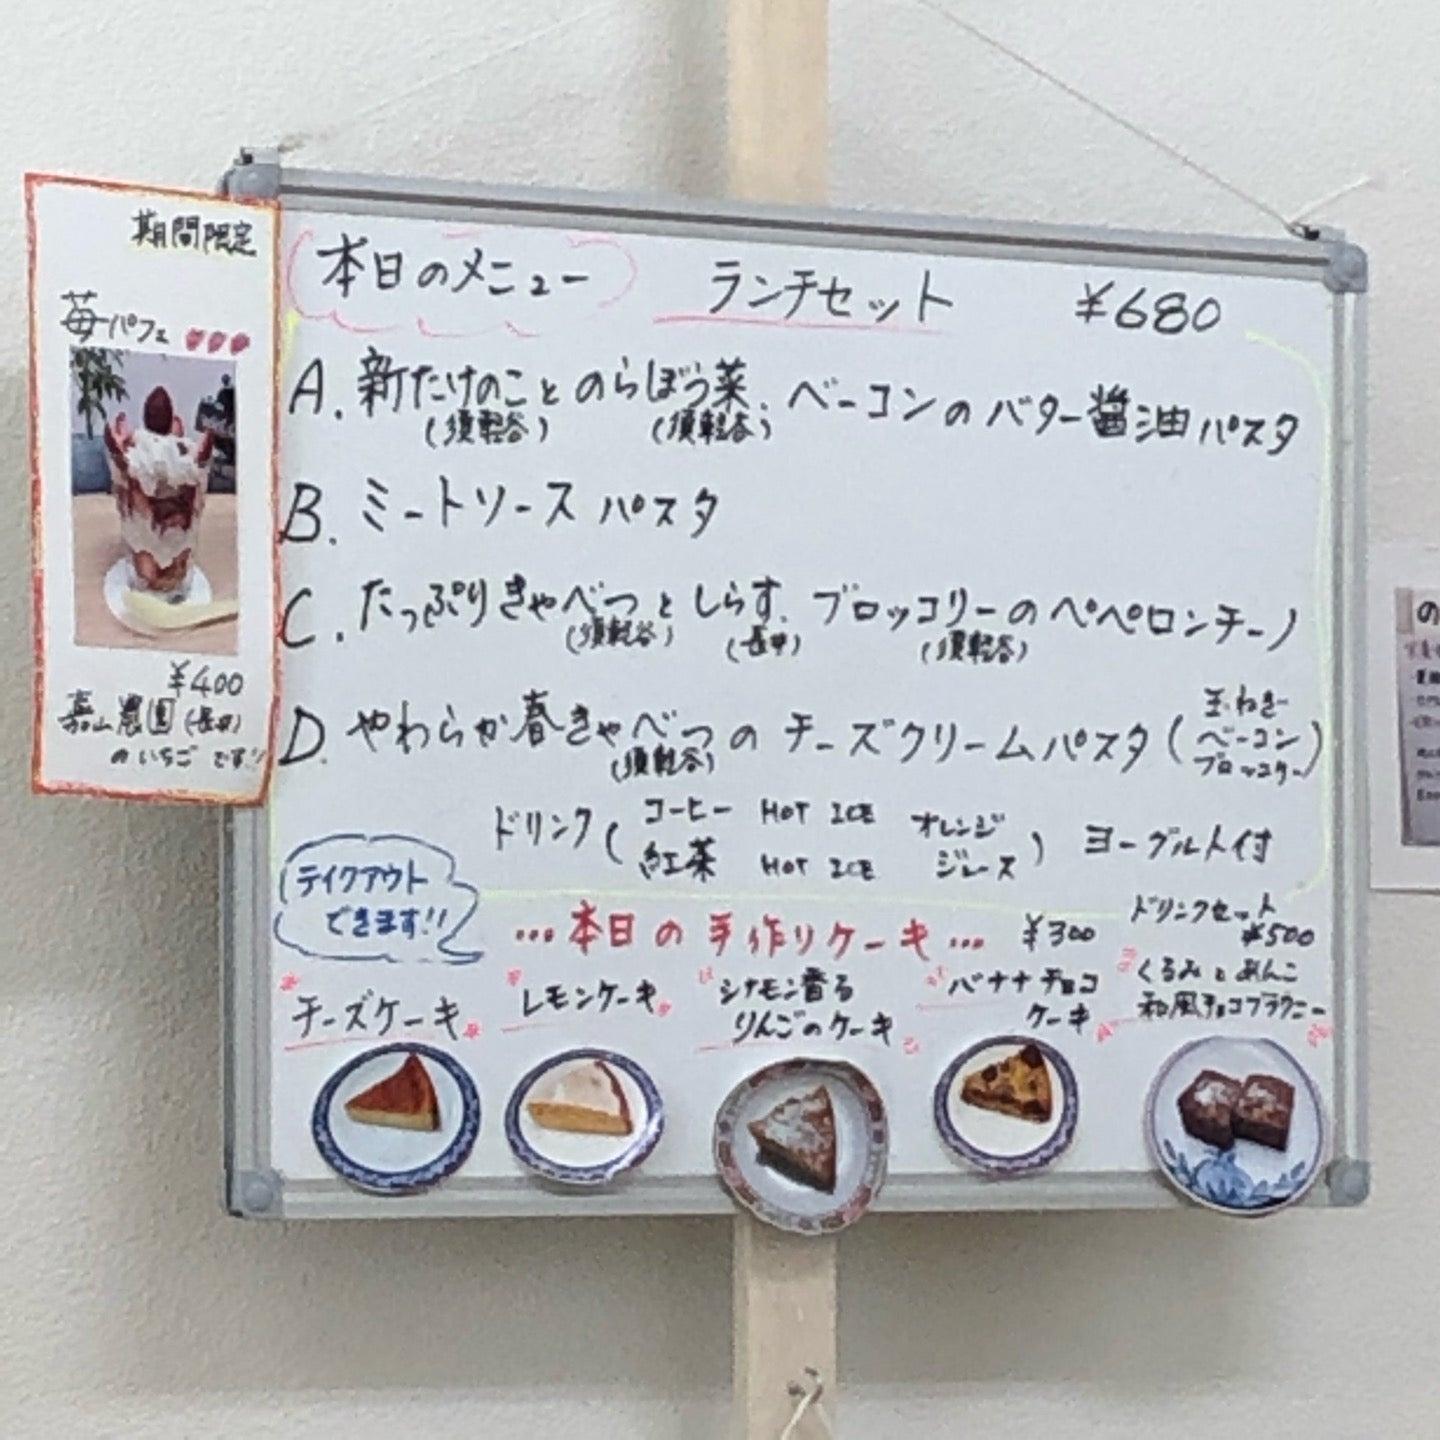 期間限定
苺パフェ
¥400
嘉山農園(長井)
のいちごです!!
本日のメニュー ランチセット ¥680
A. 新たけのことのらぼう菜、ベーコンのバター醤油パスタ
(須軽谷) (須軽谷)
B. ミートソースパスタ
C. たっぷりきゃべつとしらす、ブロッコリーのペペロンチーノ
(須軽谷) (長井) (須軽谷)
D. やわらか春きゃべつのチーズクリームパスタ(玉ねぎ ベーコン ブロッコリー)
(須軽谷)
ドリンク(コーヒー HOT ICE オレンジ
紅茶 HOT ICE ジュース) ヨーグルト付
テイクアウト
できます!!
…本日の手作りケーキ… ¥300
ドリンクセット
¥500
チーズケーキ
レモンケーキ
シナモン香る
りんごのケーキ
バナナチョコ
ケーキ
くるみとあんこ
和風チョコブラウニー